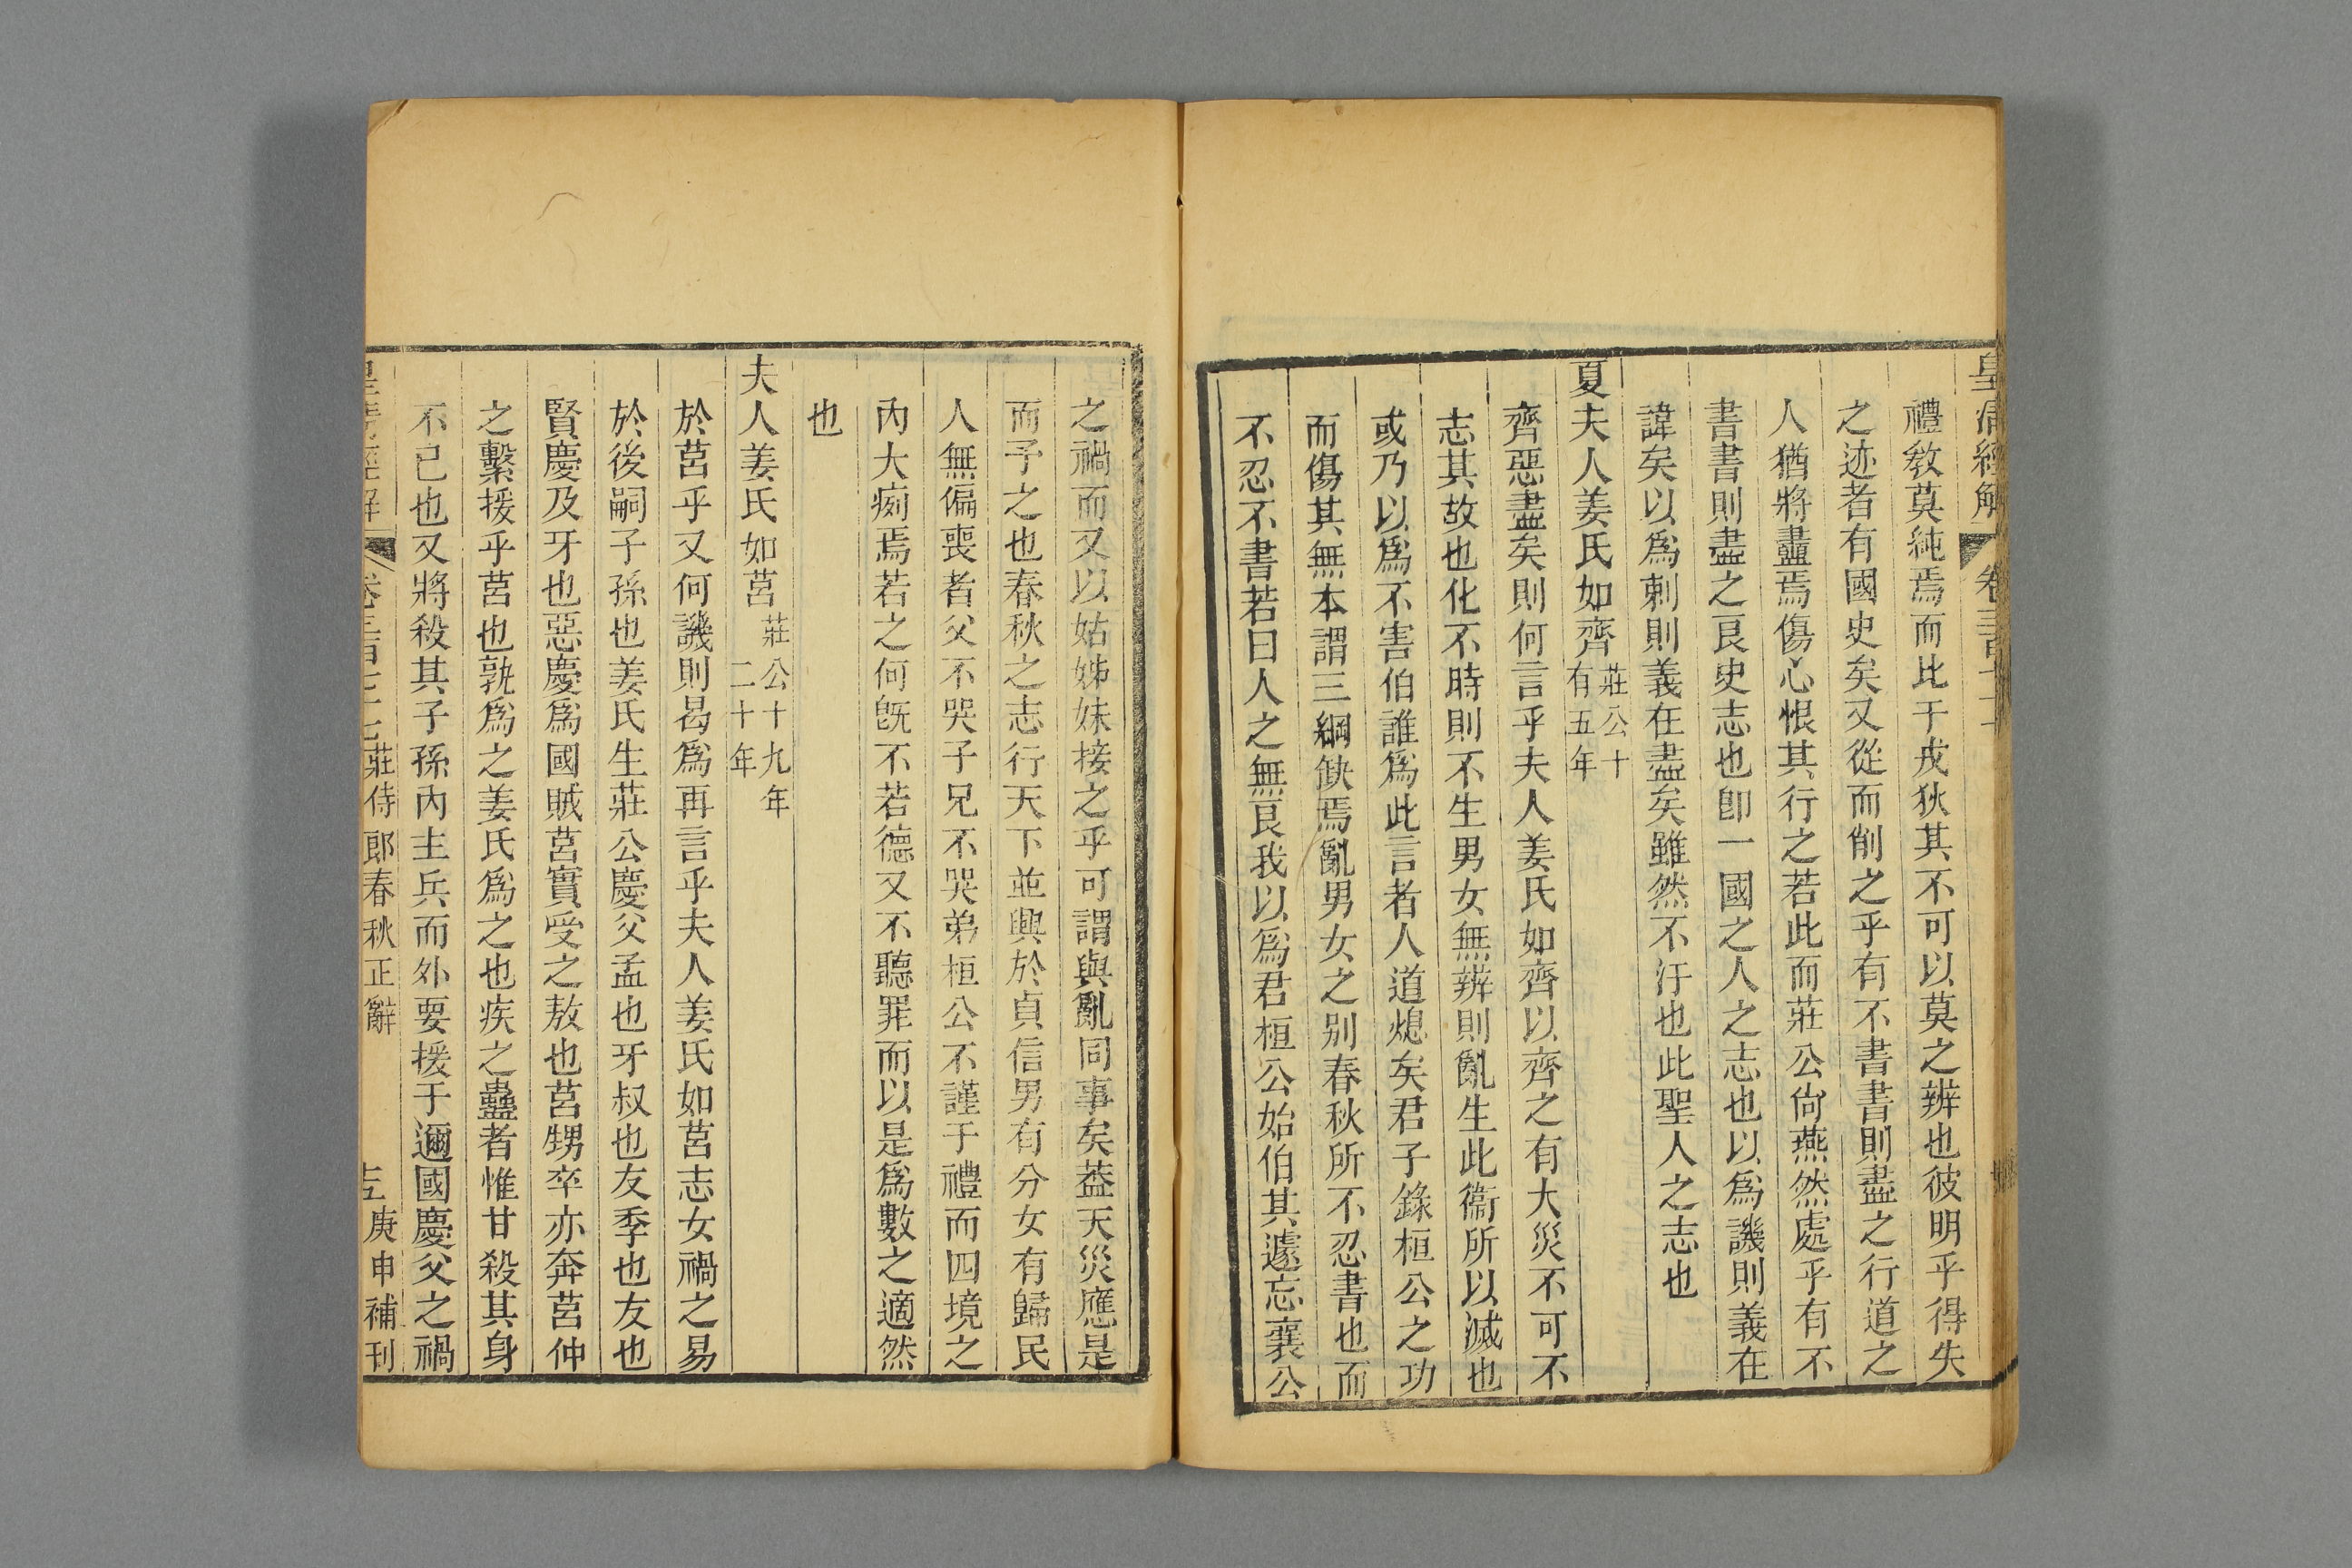 皇清經解 卷三百七十七
禮敎莫純焉而比于戎狄其不可以莫之辨也彼明乎得失
之迹者有國史矣又從而削之乎有不書書則盡之行道之
人猶將盡焉傷心恨其行之若此而莊公尙燕然處乎有不
書書則盡之良史志也卽一國之人之志也以爲譏則義在
諱矣以爲刺則義在盡矣雖然不汙也此聖人之志也
夏夫人姜氏如齊莊公十有五年
齊惡盡矣則何言乎夫人姜氏如齊以齊之有大災不可不
志其故也化不時則不生男女無辨則亂生此衞所以滅也
或乃以爲不害伯誰爲此言者人道熄矣君子錄桓公之功
而傷其無本謂三綱缺焉亂男女之别春秋所不忍書也而
不忍不書若曰人之無良我以爲君桓公始伯其遽忘襄公
之禍而又以姑姊妹接之乎可謂與亂同事矣葢天災應是
而予之也春秋之志行天下並興於貞信男有分女有歸民
人無偏喪者父不哭子兄不哭弟桓公不謹于禮而四境之
內大痢焉若之何旣不若德又不聽罪而以是爲數之適然
也
夫人姜氏如莒莊公十九年二十年
於莒乎又何譏則曷爲再言乎夫人姜氏如莒志女禍之易
於後嗣子孫也姜氏生莊公慶父孟也牙叔也友季也友也
賢慶及牙也惡慶爲國賊莒實受之敖也莒甥卒亦奔莒仲
之繫援乎莒也孰爲之姜氏爲之也疾之蠱者惟甘殺其身
不已也又將殺其子孫內主兵而外要援于邇國慶父之禍
皇淸經解 卷三百七十七莊侍郎春秋正辭 庚申補刊